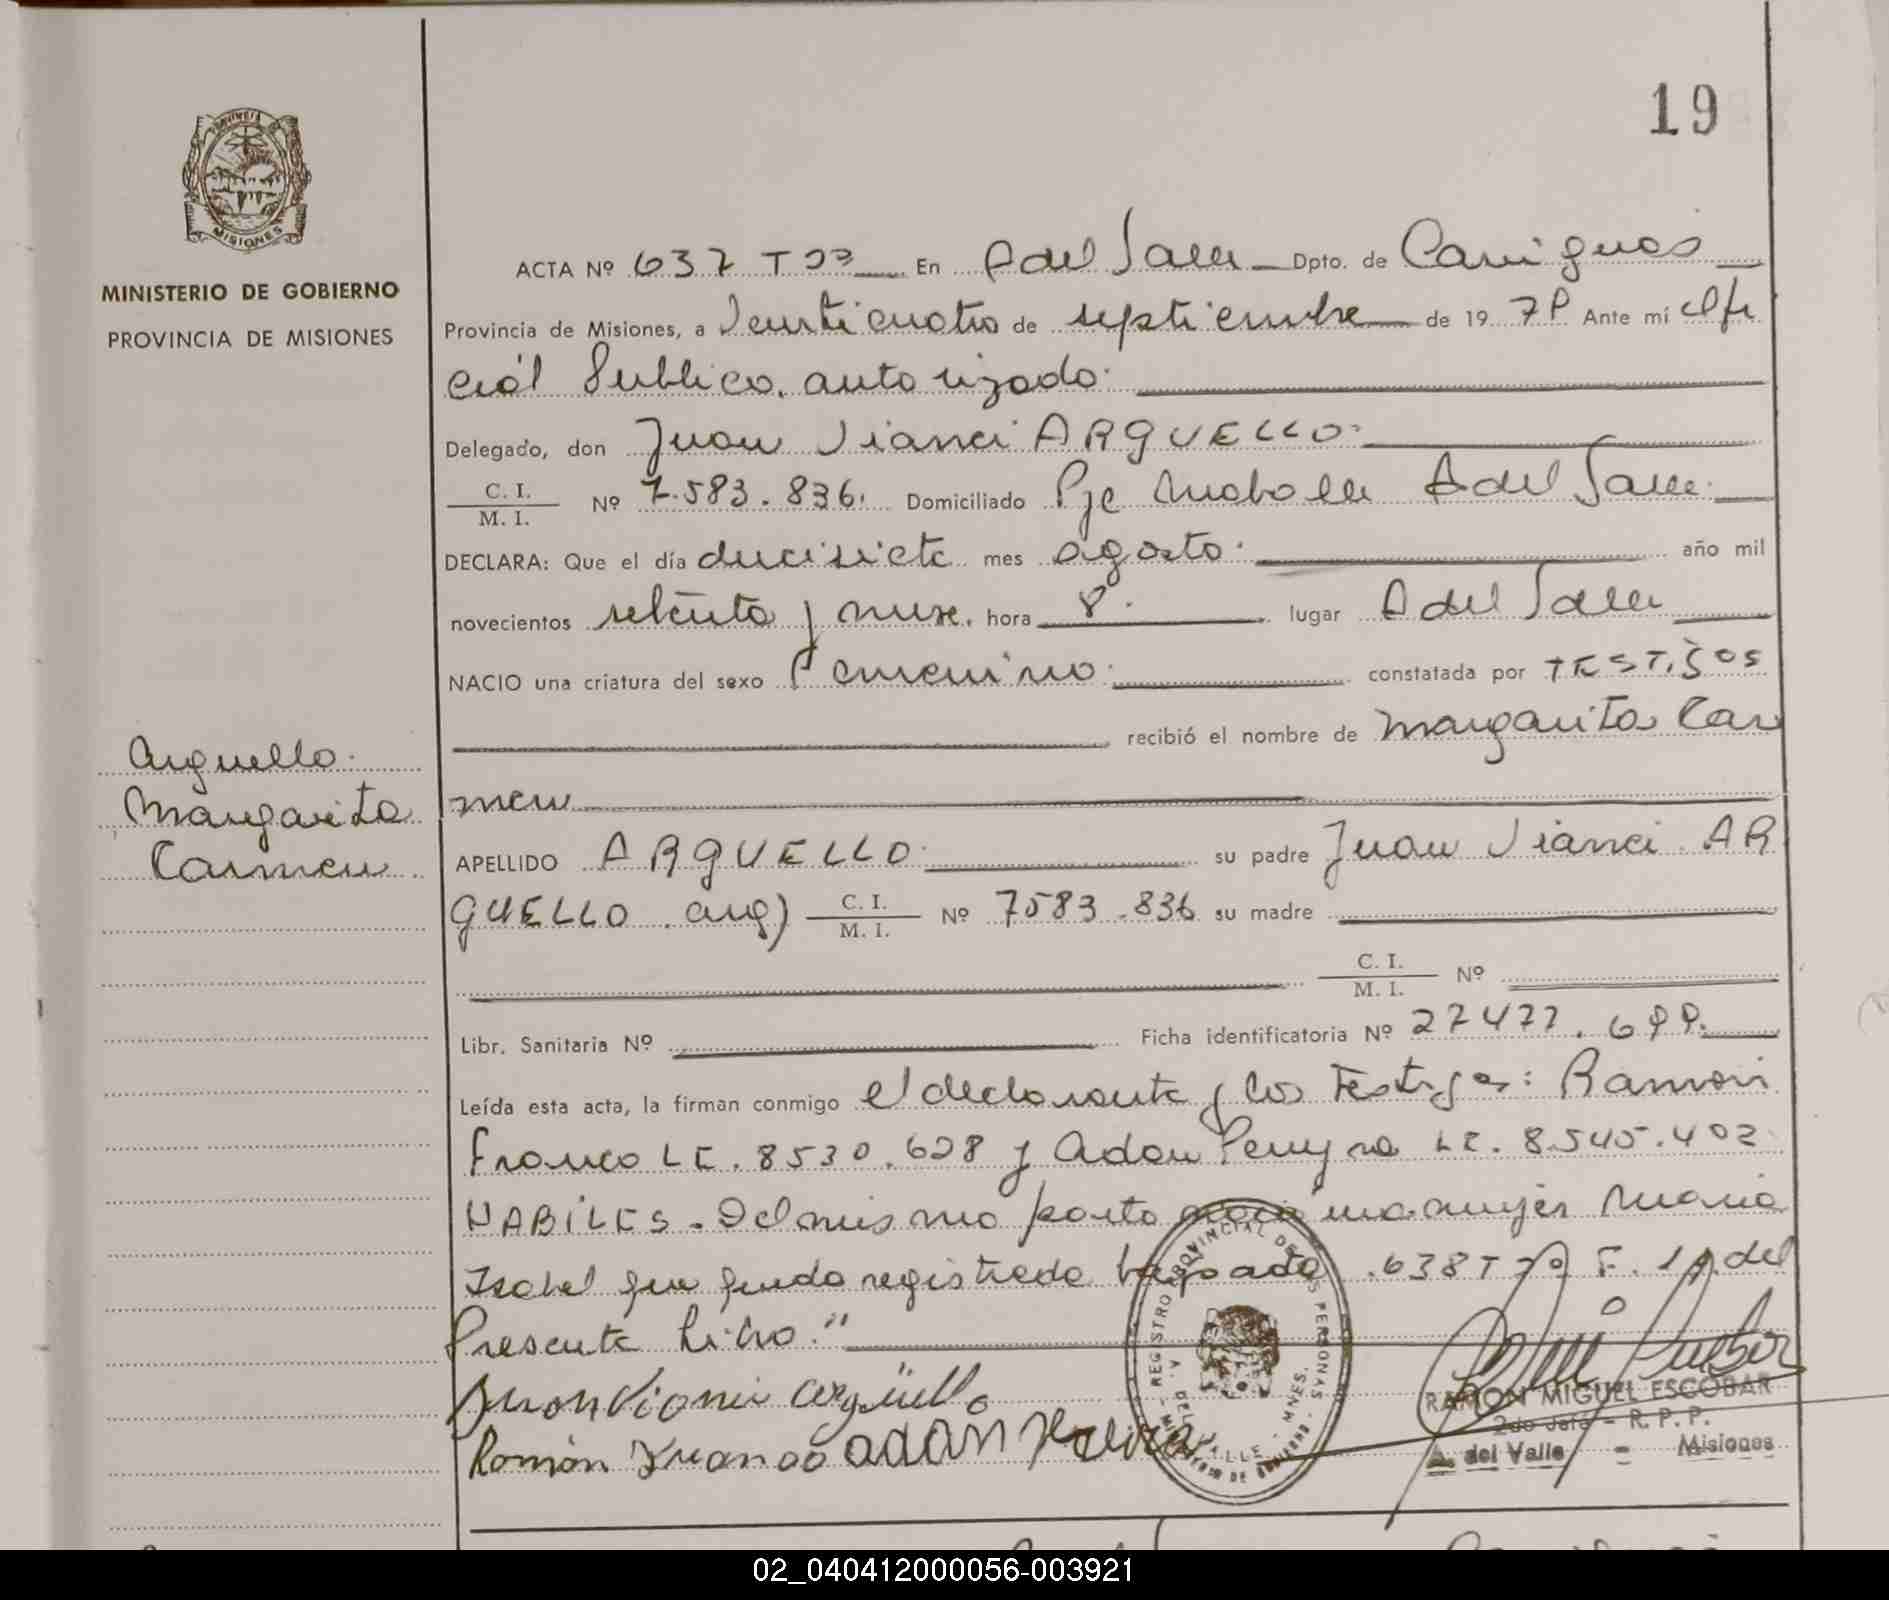 19
MISIONES
MINISTERIO DE GOBIERNO
PROVINCIA DE MISIONES
ACTA Nº 637 T En A del Valle Dpto. de Cainguas
Provincia de Misiones, a Veinticuatro de septiembre de 19 79 Ante mí Ofi
cial Publico autorizado
Delegado, don Juan Vianei ARGUELLO
C. I.
M. I. Nº 7.583.836. Domiciliado Pje A del Valle
DECLARA: Que el día diecisiete mes agosto año mil
novecientos setenta y nueve, hora 8. lugar A del Valle
NACIO una criatura del sexo Femenino constatada por TESTIGOS
recibió el nombre de Margarita Car
men
Arguello
Margarita
Carmen
APELLIDO ARGUELLO su padre Juan Vianei AR
GUELLO arg) C. I.
M. I. Nº 7583.836 su madre
C. I.
M. I. Nº
Libr. Sanitaria Nº Ficha identificatoria Nº 27477.699
Leída esta acta, la firman conmigo el declarante y los Testigos: Ramon
Franco LE. 8530.628 y Adan LE. 8.545.402
HABILES. Del mismo parto nació una mujer Maria
Isabel que queda registrada bajo acta 638 T F. 19 del
Presente Libro."
Juan Vianei Argüello
Ramón Franco adán Pereira
REGISTRO PROVINCIAL DE LAS PERSONAS
A. DEL VALLE - MNES.
MINISTERIO DE GOBIERNO
RAMON MIGUEL ESCOBAR
2do Jefe - R. P. P.
A. del Valle - Misiones
02_040412000056-003921